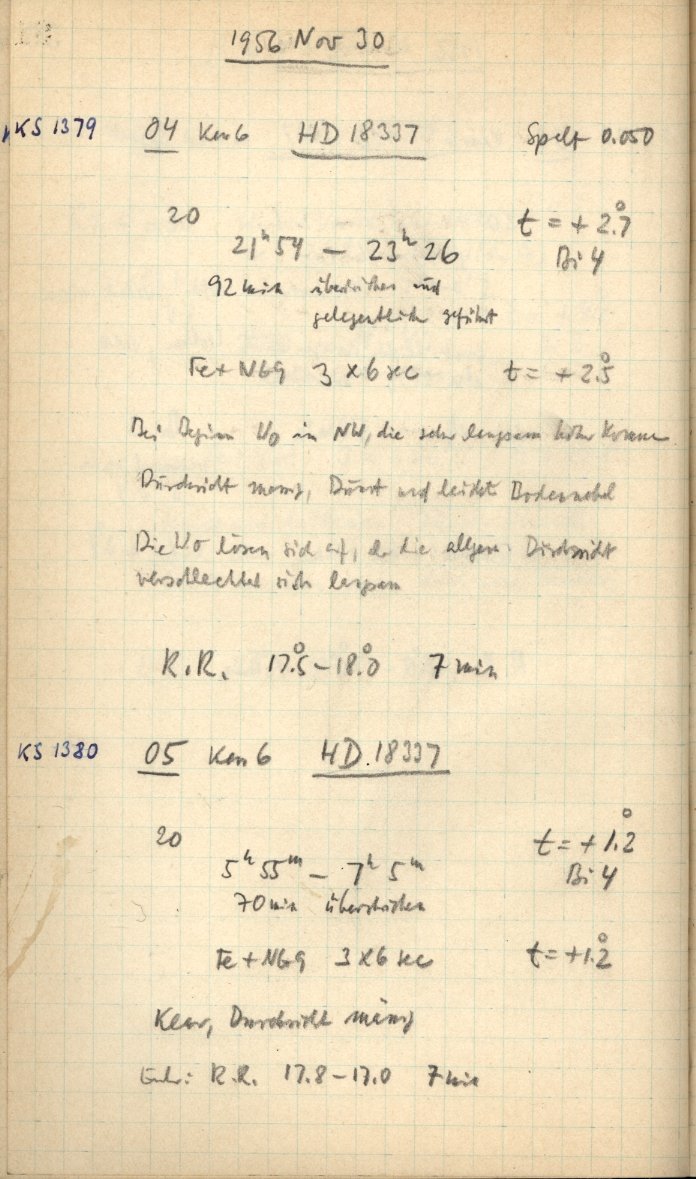 1956 Nov 30
KS 1379 04 Kam 6 HD 18337 Spalt 0.050
20 t = + 2.°7
21ʰ 54 – 23ʰ 26 Bi 4
92 min überstrichen und
gelegentlich geführt
Fe + NGG 3 x 6 sec t = + 2.°5
Bei Beginn Wo in NW, die sehr langsam höher kommen
Durchsicht mässig, Dunst und leichter Bodennebel
Die Wo lösen sich auf, die allgem. Durchsicht
verschlechtert sich langsam
R.R. 17.°5 – 18.°0 7 min
KS 1380 05 Kam 6 HD 18337
20 t = + 1.°2
5ʰ 55ᵐ – 7ʰ 5ᵐ Bi 4
70 min überstrichen
Fe + NGG 3 x 6 sec t = + 1.°2
Klar, Durchsicht mässig
R.R. 17.8 – 17.0 7 min